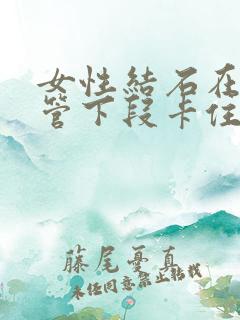 女性結石在
管下段卡住
藤尾憂真
未經同意禁止轉載